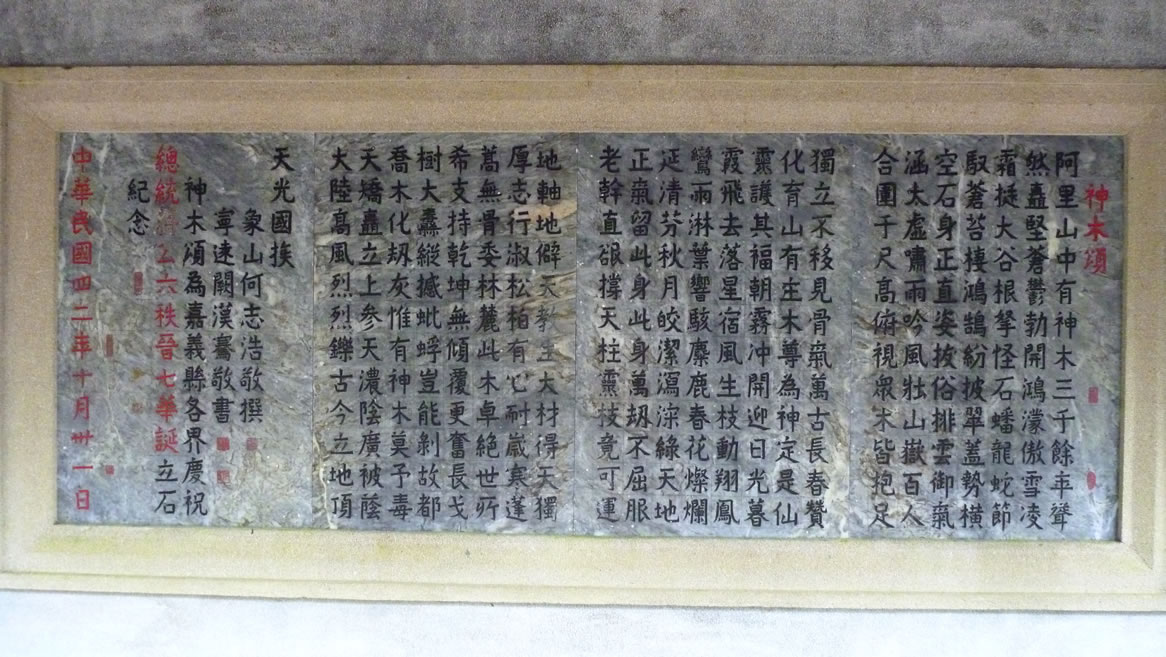 神木頌
阿里山中有神木三千餘年聳
然矗堅蒼鬱勃開鴻濛傲雪凌
霜挺大谷根拏怪石蟠龍蛇節
馭蒼苔棲鴻鵠紛披翠蓋勢橫
空石身正直姿拔俗排雲御氣
涵太虛嘯雨吟風壯山嶽百人
合圍千尺高俯視眾木皆抱足
獨立不移見骨氣萬古長春贊
化育山有庄木尊為神定是仙
靈護其福朝霧冲開迎日光暮
霞飛去落星宿風生枝動翔鳳
鸞雨淋葉響駭麋鹿春花燦爛
延清芬秋月皎潔瀉淙綠天地
正氣留此身此身萬刼不屈服
老幹直欲撐天柱靈枝竟可運
地軸地僻天教生大材得天獨
厚志行淑松柏有心耐歲寒蓬
蒿無骨委林麓此木卓絕世所
希支持乾坤無傾覆更奮長戈
樹大纛縱撼蚍蜉豈能剝故都
喬木化刼灰惟有神木莫予毒
夭矯矗立上參天濃陰廣被蔭
大陸高風烈烈鑠古今立地頂
天光國族
象山何志浩敬撰
寧遠闕漢騫敬書
神木頌為嘉義縣各界慶祝
總統蔣公六秩晉七華誕立石
紀念
中華民國四二年十月卅一日